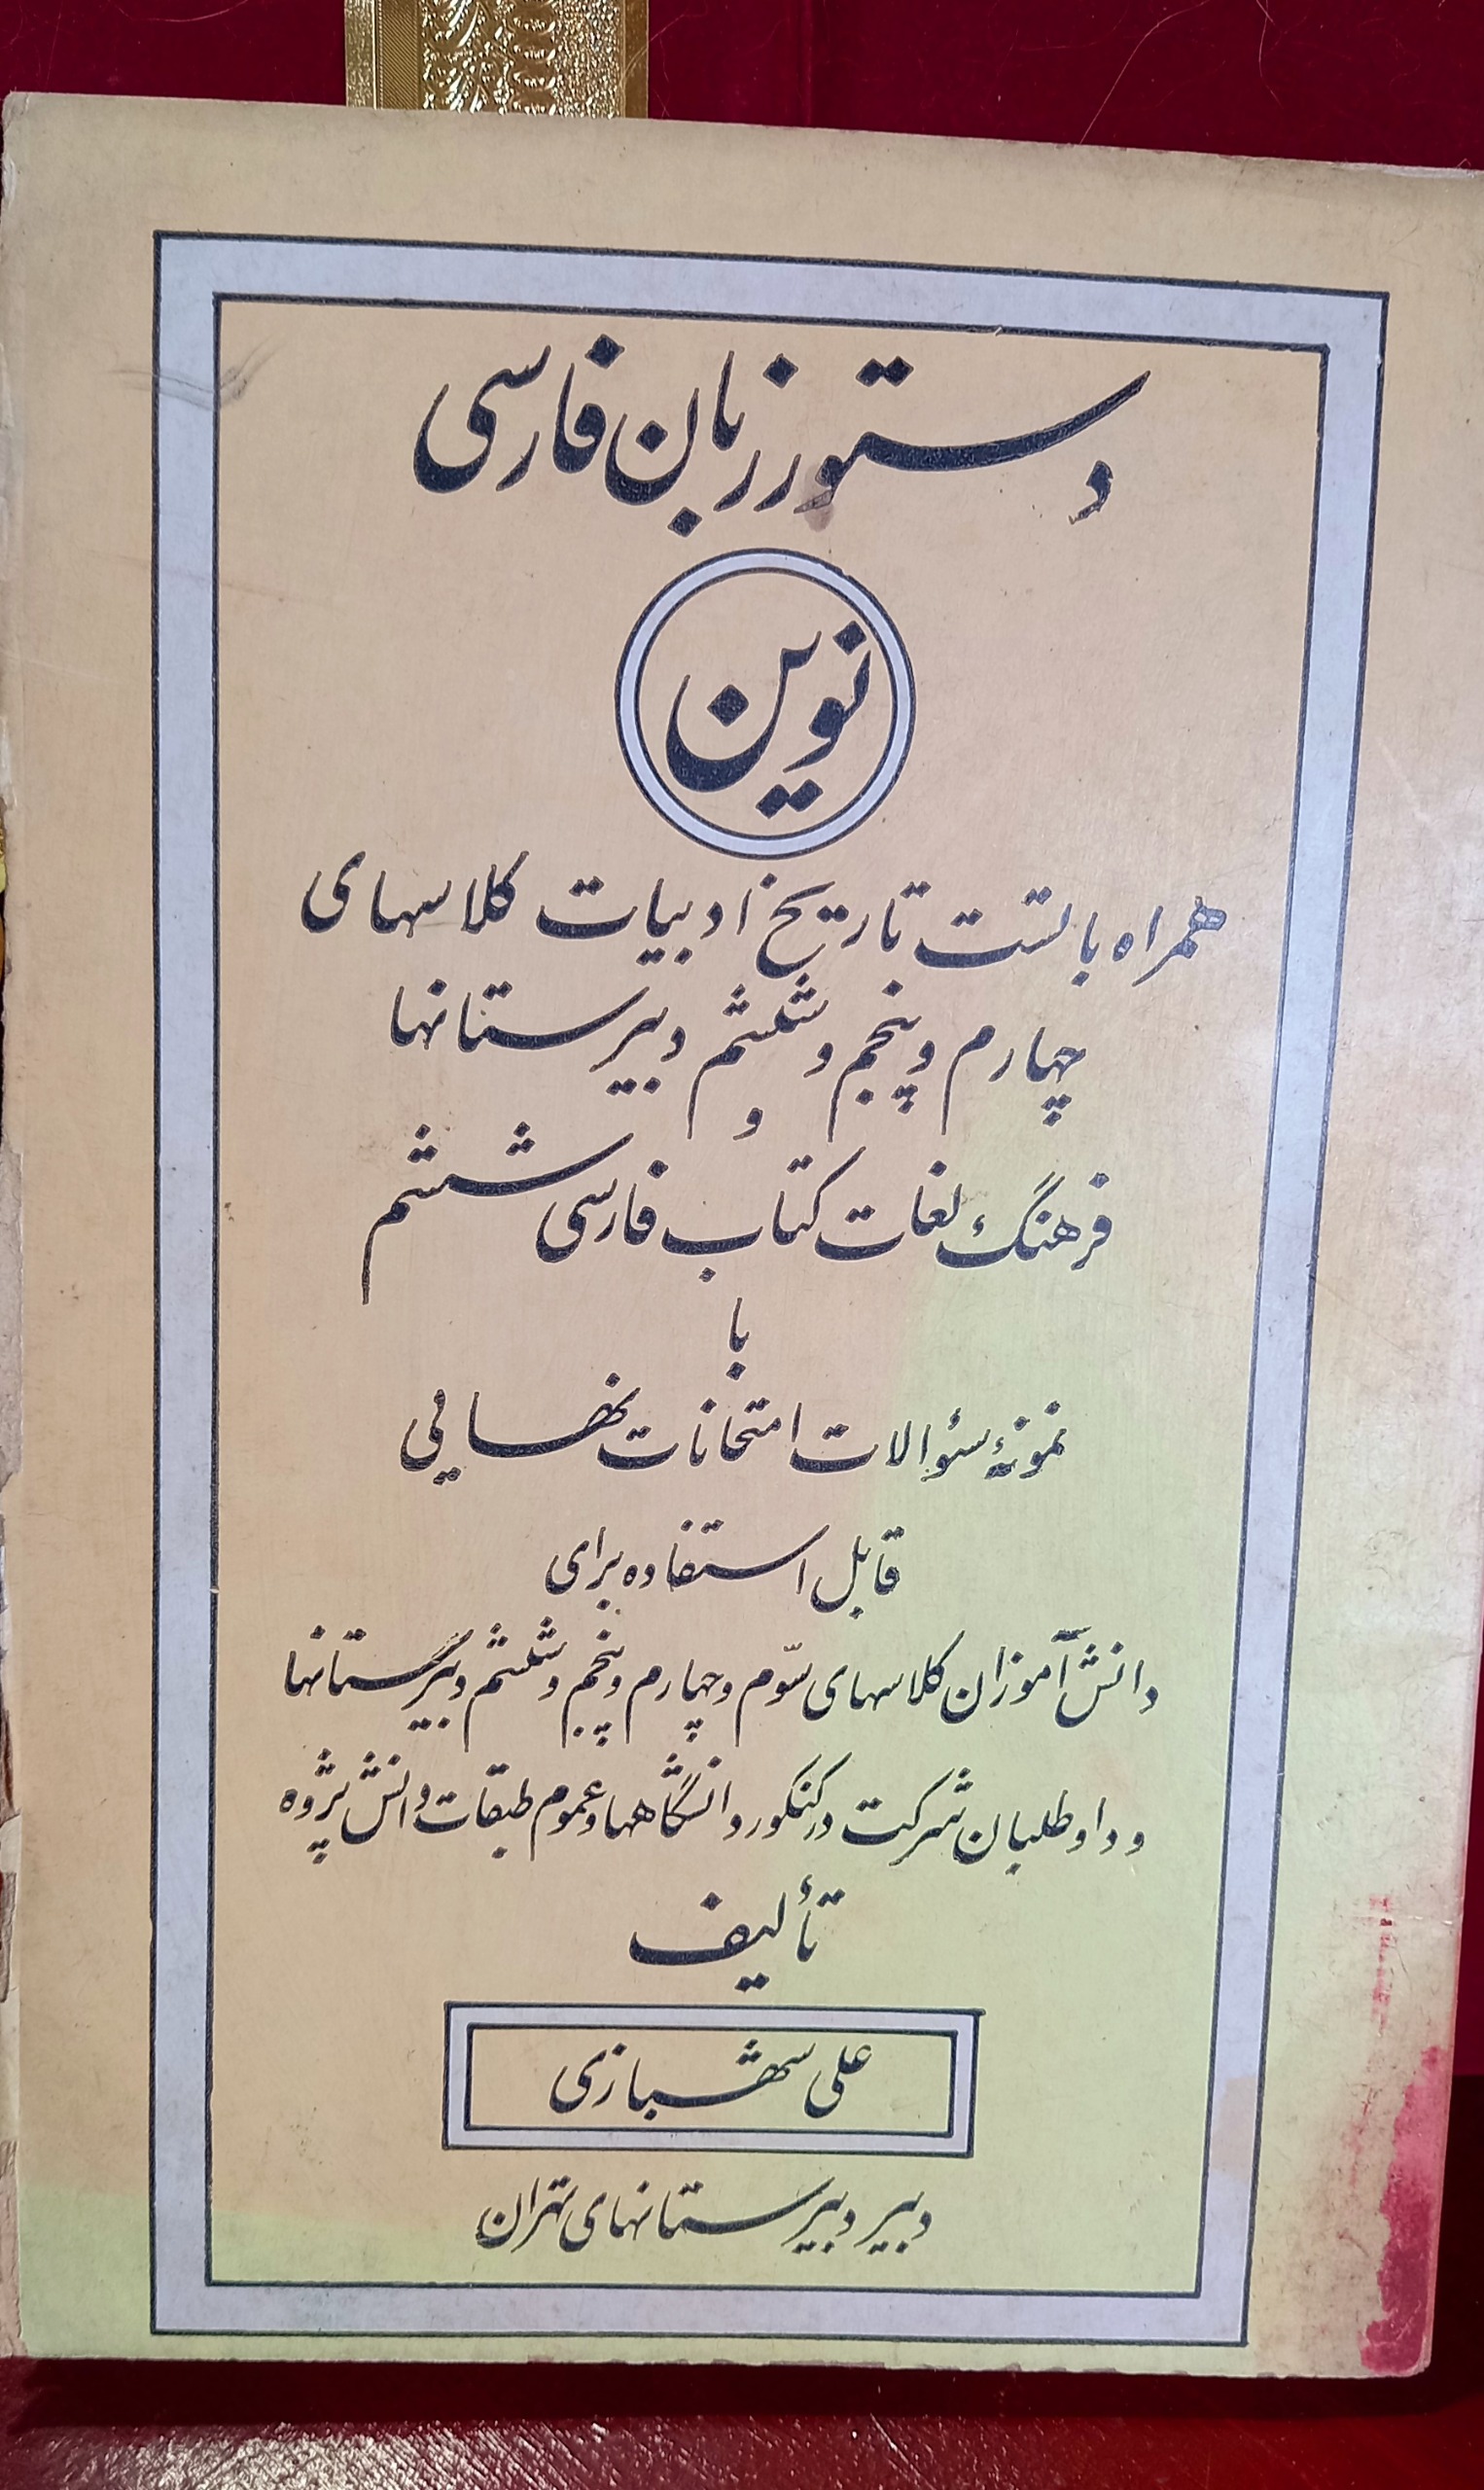 دستور زبان فارسی
نوین
همراه با تست تاریخ ادبیات کلاسهای
چهارم و پنجم و ششم دبیرستانها
و
فرهنگ لغات کتاب فارسی ششم
با
نمونهٔ سئوالات امتحانات نهائی
قابل استفاده برای
دانش آموزان کلاسهای سوّم و چهارم و پنجم و ششم دبیرستانها
و داوطلبان شرکت در کنکور دانشگاهها و عموم طبقات دانش پژوه
تألیف
علی شهبازی
دبیر دبیرستانهای تهران